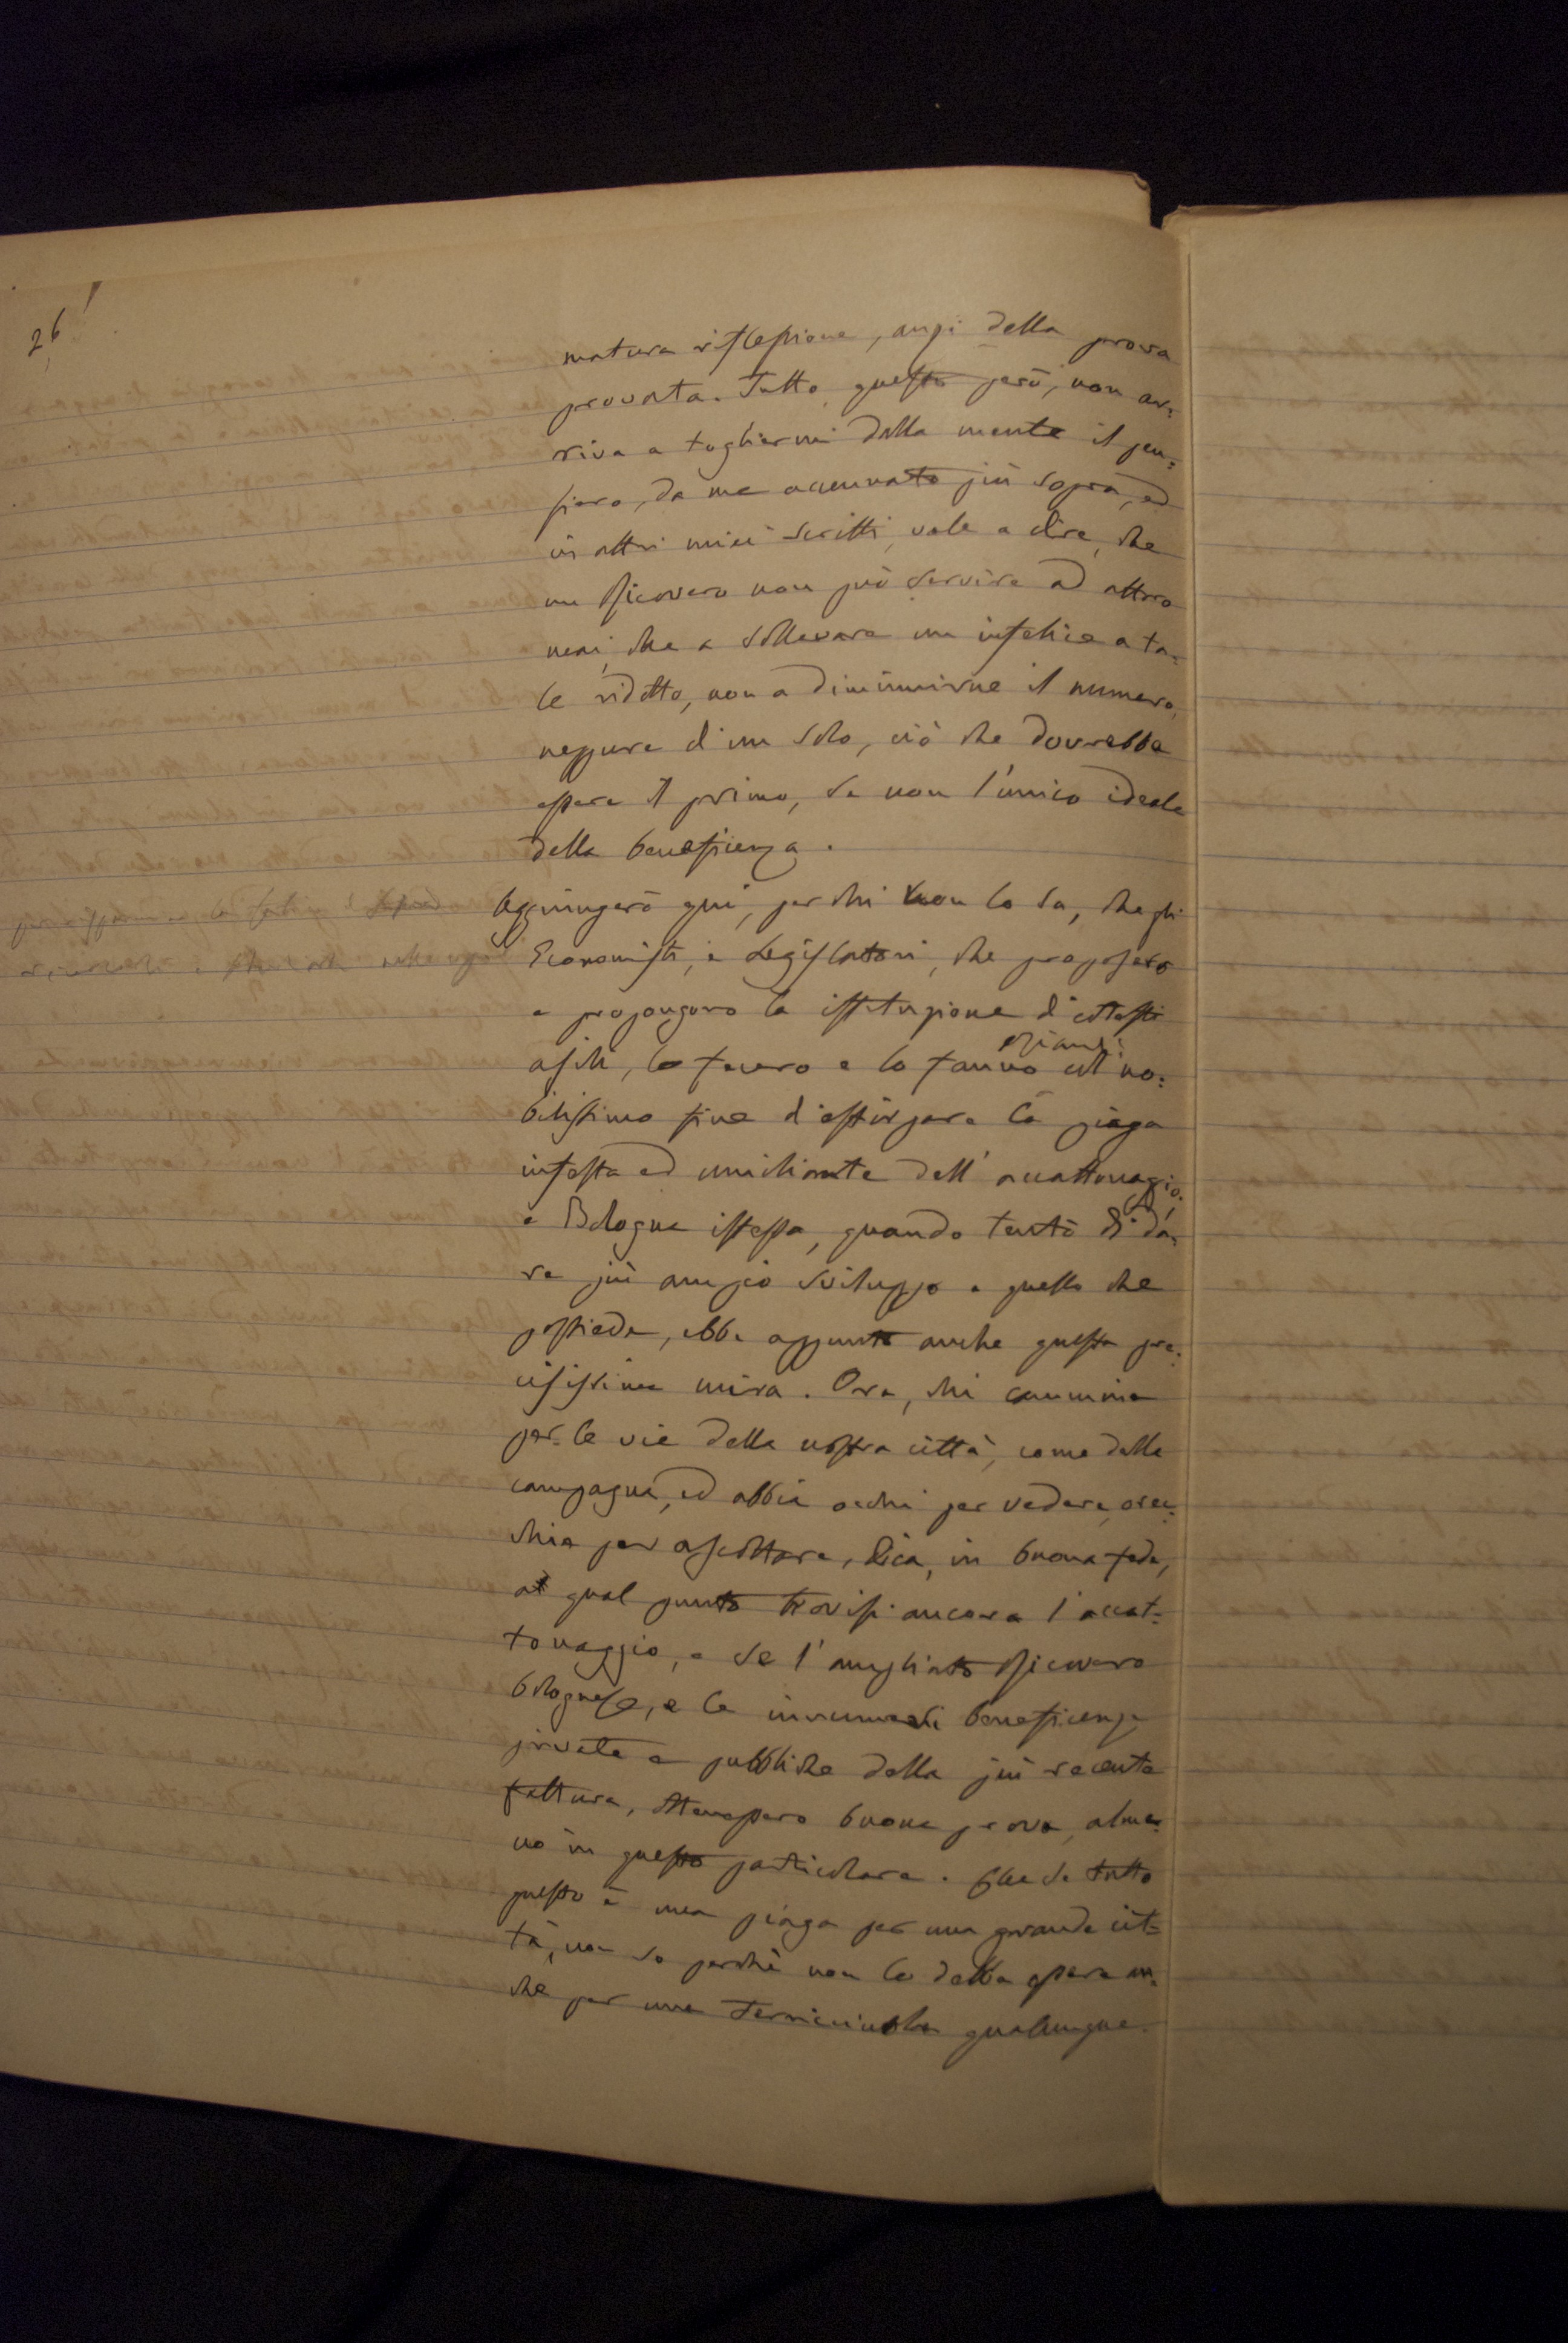 26
matura riflessione, anzi della prova
provata. Tutto questo però, non ar=
riva a togliermi dalla mente il pen=
siero, da me accennato più sopra, ed
in altri miei scritti, vale a dire, che
un Ricovero non può servire ad altro
mai, che a sollevare un infelice a ta=
le ridotto, non a diminuirne il numero,
neppure di un solo, ciò che dovrebbe
essere il primo, se non l'unico ideale
della beneficienza.
Aggiungerò qui, per chi non lo sa, che gli
Economisti, e Legislatori, che proposero
e propongono la istituzione di cotesti
asili, lo fecero e lo fanno eziandio col no=
bilissimo fine d'estirpare la piaga
infesta ed umiliante dell'accattonaggio.
e Bologna istessa, quando tentò di da=
re più ampio sviluppo a quello che
possiede, ebbe appunto anche questa pre=
cisissima mira. Ora, chi cammina
per le vie della nostra città, come della
campagna, ed abbia occhi per vedere, orec=
chia per ascoltare, dica, in buona fede,
a qual punto trovisi ancora l'accat=
tonaggio, e se l'ampliato Ricovero
bolognese, e le beneficenze
private e pubbliche della più recente
fattura, buona prova, alme=
no in questo particolare. Che se tutto
questo è una piaga per una grande cit=
tà, non so perchè non lo debba essere an=
che per una terricciuola qualunque.